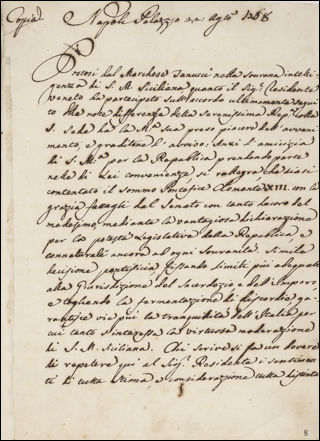 Copia
Napoli Palazzo 22: Agto 1758
Postosi dal Marchese Tanucci nella Sovrana intelli-
genza di S. M. Siciliana quanto il Sigr Residente
Veneto ha partecipato sull'accordo ultimamente seguito
tra note differenze della Serenissima Repca colla
S. Sede ha la Mtà Sua preso piacere dell'avveni-
mento, e graditone l'avviso: Anzi l'amicizia
di S. Mtà per la Repubblica prendendo parte
nelle di Lei convenienze si rallegra che siasi
contentato il Sommo Pontefice Clemente XIII. con la
grazia fattagli dal Senato con tanto decoro del
medesimo, mediante la vantaggiosa dichiarazione
per la potestà Legislativa della Repubblica e
connaturale ancora ad ogni Sovranità. Simile
decisione pontificia fissando limiti più adeguati
alla Giurisdizione del Sacerdozio, e dell'Impero,
e togliendo la fermentazione di discordie, ga-
rantisce vie più la tranquilità dell'Italia per
cui tanto s'interessa la virtuosa moderazione
di S. M. Siciliana. Chi scrive si fa un dovere
di repetere qui al Sigr Residente i sentimen-
ti di tutta stima, e considerazione tutta distinta
8